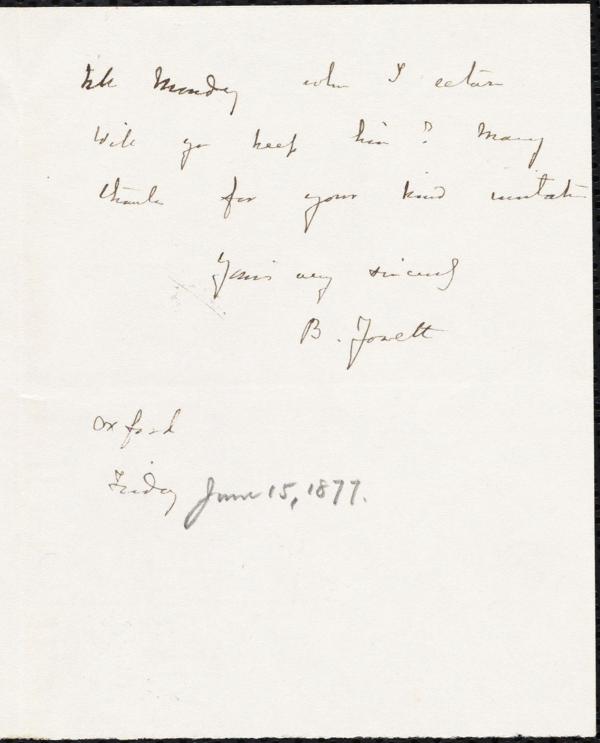 till Monday when I return
Will you keep him? Many
thanks for your kind invitation
Yours very sincerely
B. Jowett
Oxford
Friday June 15, 1877.